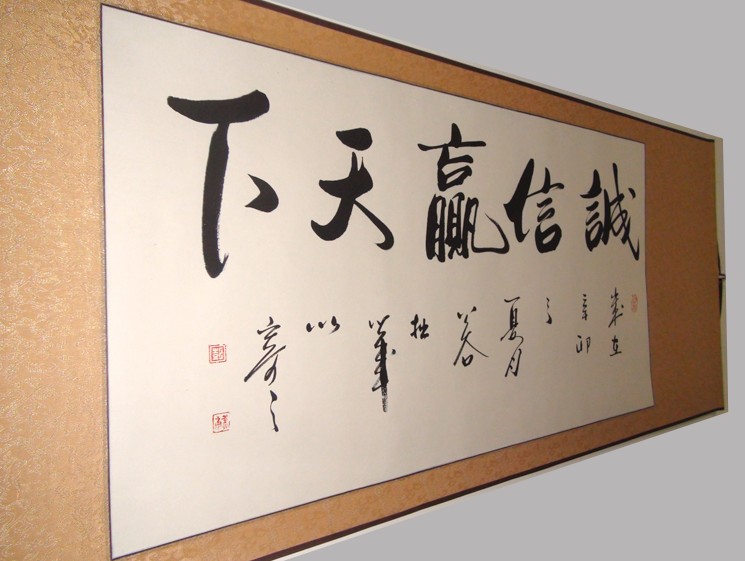 誠信贏天下
歲在
辛卯
之
夏月
拙
筆
以
寄之